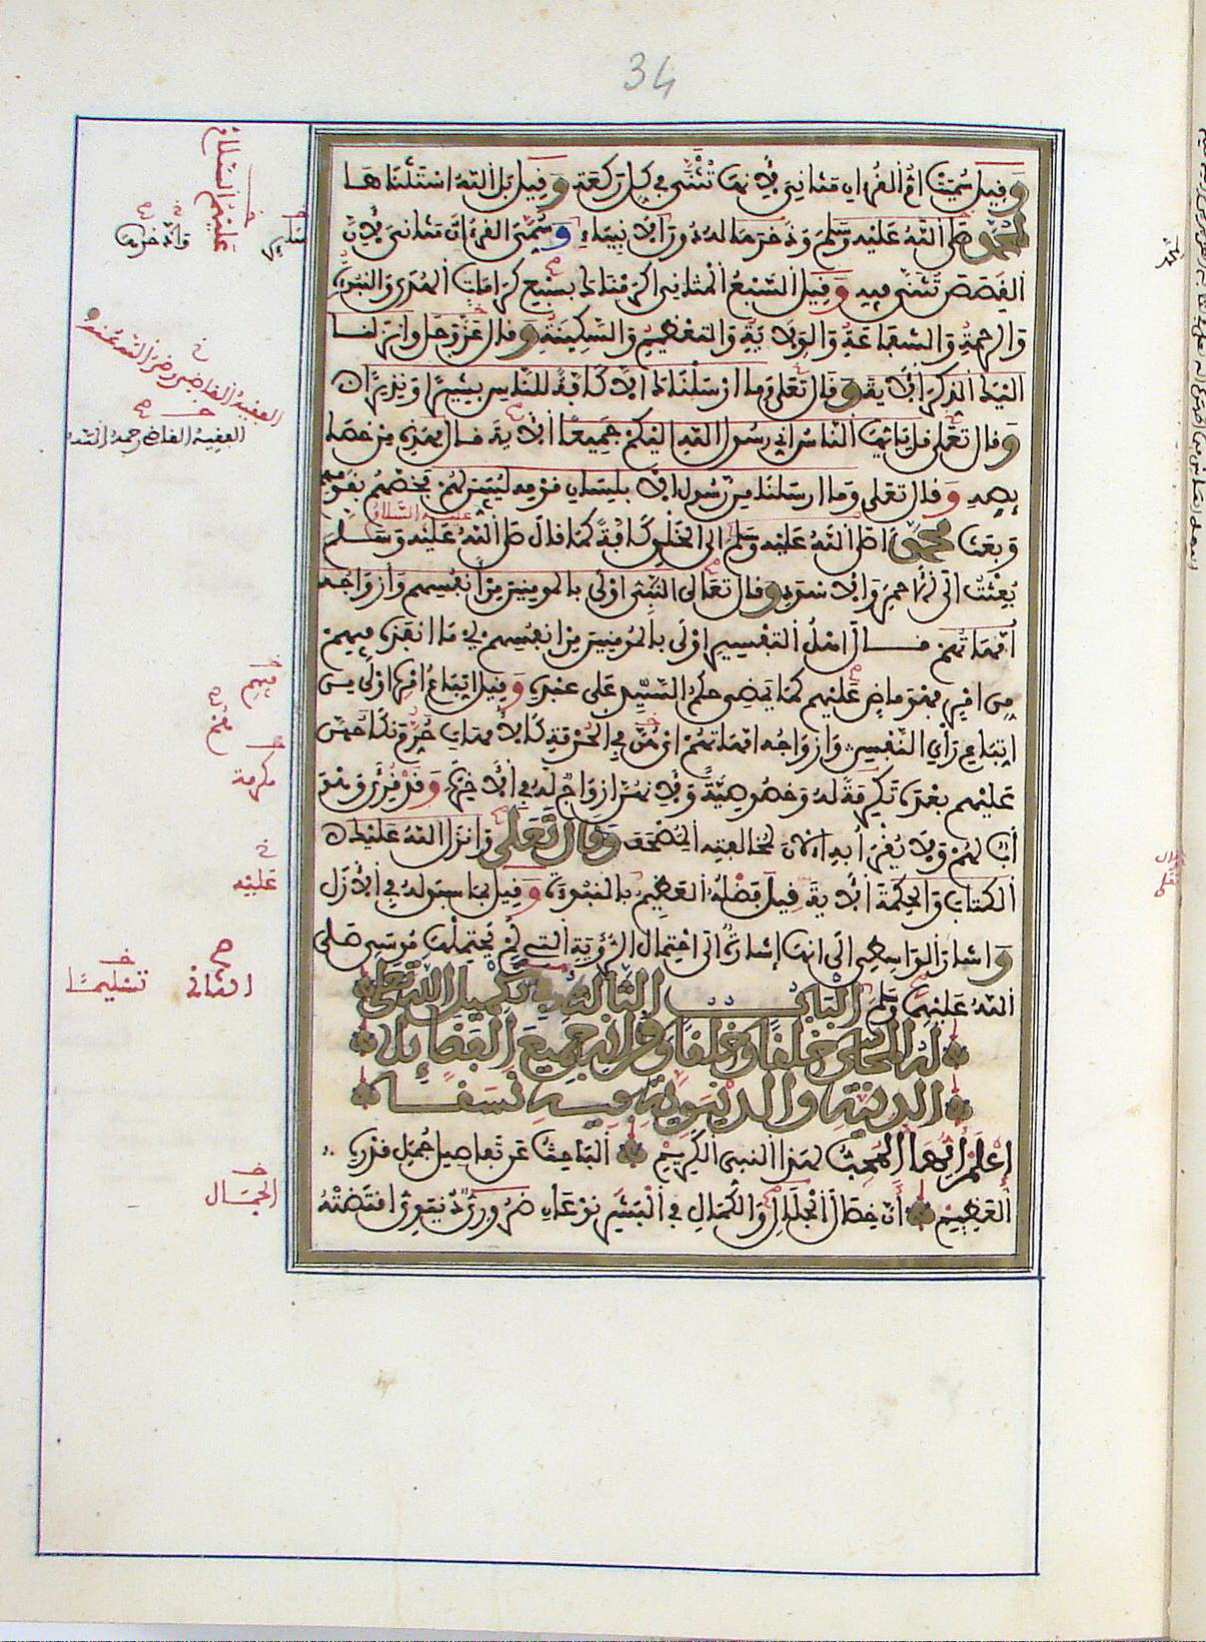 34
وقيل سميت ام القرءان مثاني لأنها تثنى في كل ركعة وقيل بل الله استثناها
لمحمد صلى الله عليه وسلم وذخرها له دون الأنبياء وسمي القرءان مثاني لأن
القصص تثنى فيه وقيل السبع المثاني اكرمناك بسبع كرامات الهدى والنبوة
والرحمة والشفاعة والولاية والتعظيم والسكينة وقال عز وجل وانزلنا
اليك الذكر الآية وقال تعلى وما ارسلناك الا كافة للناس بشيرا ونذيرا
وقال تعلى قل يأيها الناس اني رسول الله اليكم جميعا الآية قال فهذه من خصا
يصه وقال تعلى وما ارسلنا من رسول الا بلسان قومه ليبين لهم فخصهم بقومهم
وبعث محمدا صلى الله عليه وسلم الى الخلق كافة كما قال صلى الله عليه وسلم
عليه السلام
بعثت الى الأحمر والأسود وقال تعالى النبيء اولى بالمومنين من أنفسهم وأزواجه
أمهاتهم قال اهل التفسير اولى بالمومنين من انفسهم اي ما انفذه فيهم
من امر فهو ماض عليهم كما يمضي حكم السيد على عبده وقيل اتباع امره اولى من
اتباع رأي النفس وازواجه امهاتهم اي هن في الحرمة كالأمهات حرم نكاحهن
عليهم بعده تكرمة له وخصوصية ولأنهن ازواج له في الآخرة وقد قرئ وهو
أب لهم ولا يقرأ به الآن لمخالفته المصحف وقال تعلى وانزل الله عليك
الكتاب والحكمة الآية قيل فضله العظيم بالنبوة وقيل بما سبق له في الأزل
واشار الواسطي الى انها إشارة الى احتمال الرؤية التي لم يحتملها موسى صلى
الله عليهما وسلم الباب الثاني في تكميل الله تعلى
له المحاسن خلقا وخلقا وقرانه جميع الفضايل
الدينية والدنيوية فيه نسقا
إعلم ايها المحب لهذا النبي الكريم الباحث عن تفاصيل جمل قدره
العظيم أن خصال الجلال والكمال في البشر نوعان ضروري دنيوي اقتضته
عليهم السلام
وادخرها
الفقيه القاضي رضي الله عنه
الفقيه القاضي رحمه الله
فيهم
مكرمة
عليه
الثاني
تسليما
الجمال